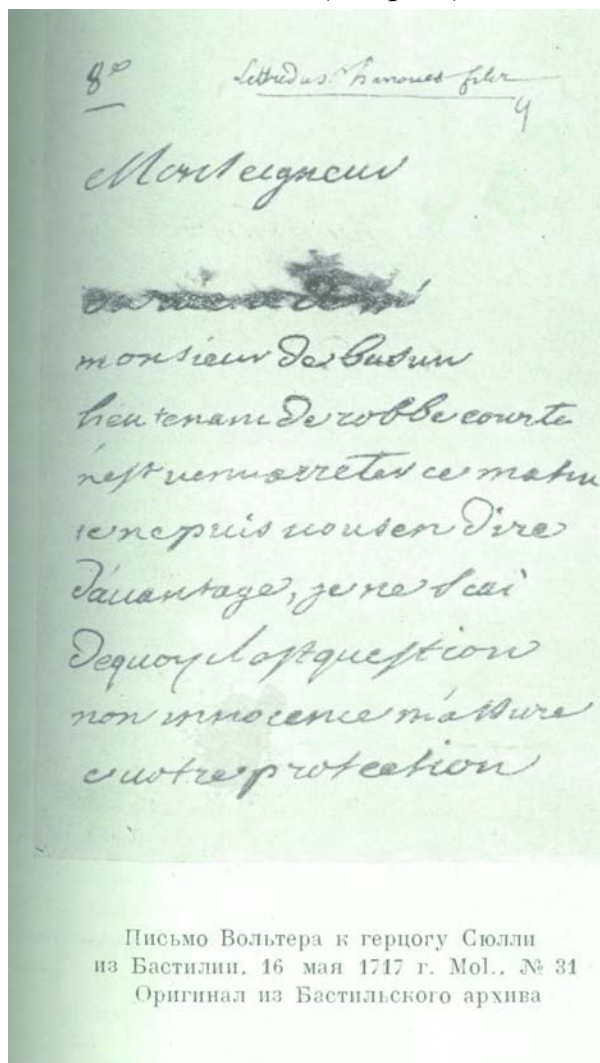 8º
Monseigneur
monsieur de basun
lieutenant de robbe courte
m'est venu arreter ce matin
je ne puis vous en dire
davantage, je ne scai
de quoy il est question
mon innocence m'assure
votre protection
Письмо Вольтера к герцогу Сюлли
из Бастилии. 16 мая 1717 г. Mol., № 31
Оригинал из Бастильского архива